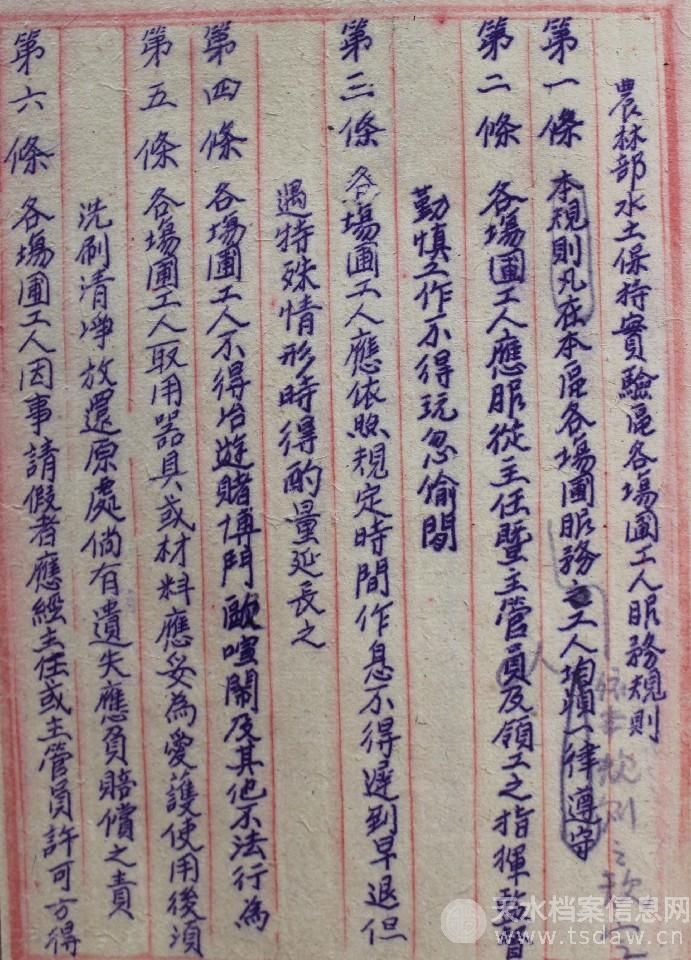 農林部水土保持實驗區各塲圃工人服務規則
第一條 本規則凡在本區各塲圃服務之工人均須一律遵守
依本規則之
第二條 各塲圃工人應服從主任暨主管員及領工之指揮
人
勤慎工作不得玩忽偷閒
第三條 各塲圃工人應依照規定時間作息不得遲到早退但
遇特殊情形時得酌量延長之
第四條 各塲圃工人不得冶遊賭博鬥毆喧鬧及其他不法行為
第五條 各塲圃工人取用器具或材料應妥為愛護使用後須
洗刷清凈放還原處倘有遺失應負賠償之責
第六條 各塲圃工人因事請假者應經主任或主管員許可方得
天水档案信息网
www.tsdaw.cn